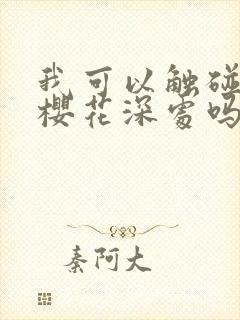 我可以触碰
樱花深处吗
秦阿大